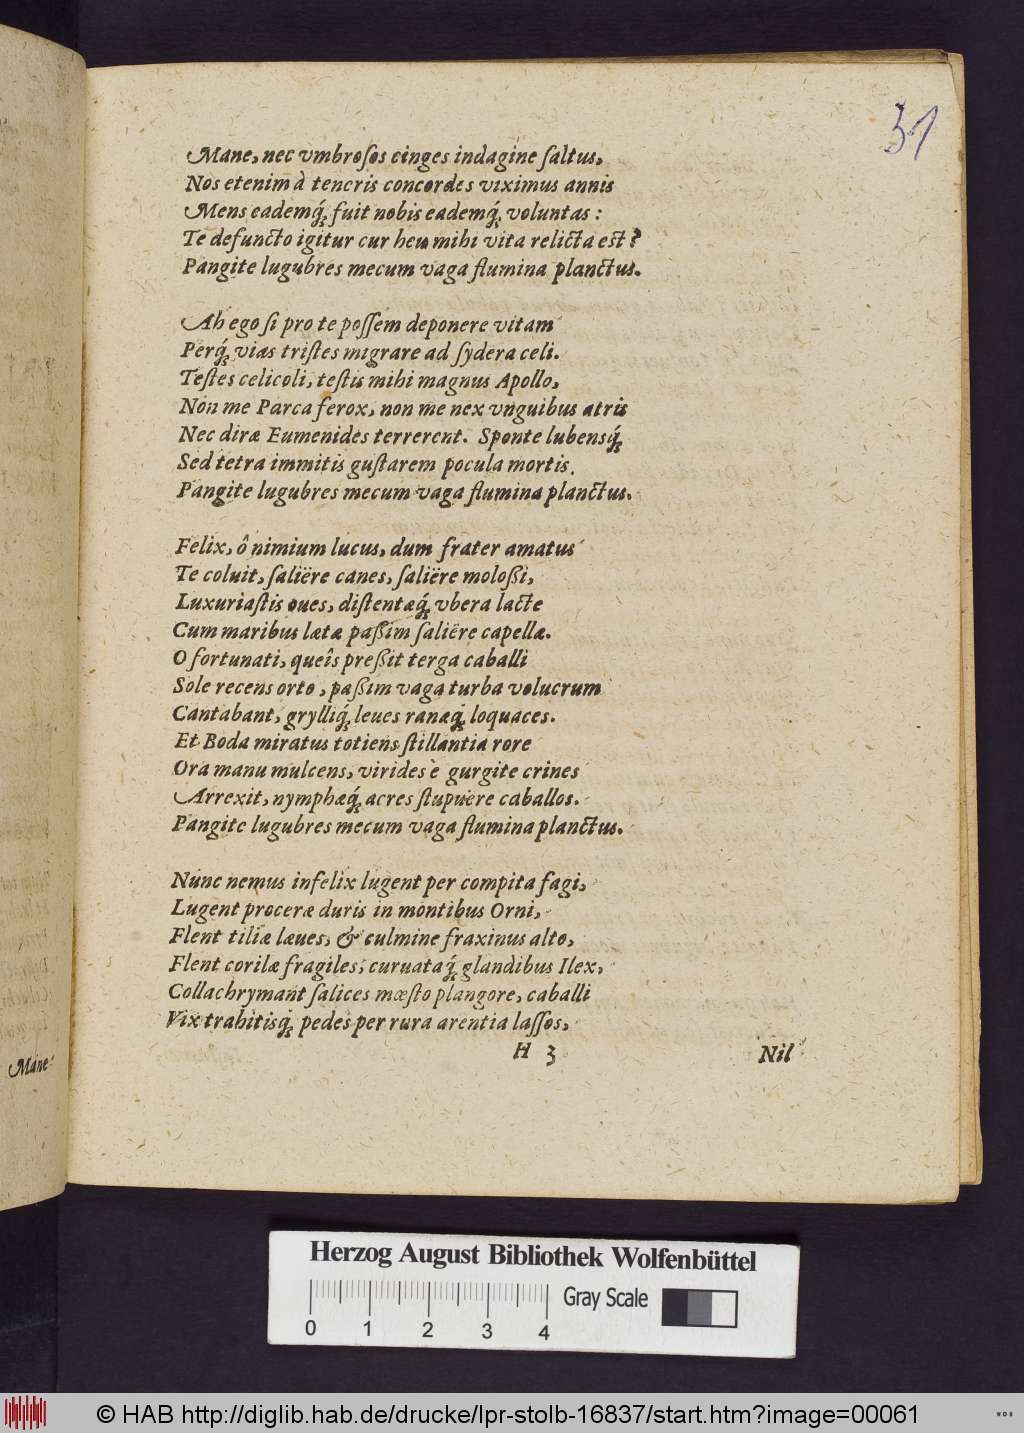 31
Mane, nec vmbroſos cinges indagine ſaltus,
Nos etenim à teneris concordes viximus annis
Mens eademq́; fuit nobis eademq́; voluntas:
Te defuncto igitur cur heu mihi vita relicta est?
Pangite lugubres mecum vaga flumina planctus.
Ah ego ſi pro te poſſem deponere vitam
Perq́; vias triſtes migrare ad ſydera celi.
Teſtes celicoli, teſtis mihi magnus Apollo,
Non me Parca ferox, non me nex vnguibus atris
Nec diræ Eumenides terrerent. Sponte lubensq́;
Sed tetra immitis guſtarem pocula mortis.
Pangite lugubres mecum vaga flumina planctus.
Felix, ô nimium lucus, dum frater amatus
Te coluit, ſaliëre canes, ſaliëre moloßi,
Luxuriaſtis oues, diſtentæq́; vbera lacte
Cum maribus lætæ paßim ſaliëre capellæ.
O fortunati, queîs preßit terga caballi
Sole recens orto, paßim vaga turba volucrum
Cantabant, grylliq́; leues ranæq́; loquaces.
Et Boda miratus totiens ſtillantia rore
Ora manu mulcens, virides è gurgite crines
Arrexit, nymphæq́; acres ſtupuêre caballos.
Pangite lugubres mecum vaga flumina planctus.
Nunc nemus infelix lugent per compita fagi,
Lugent proceræ duris in montibus Orni,
Flent tiliæ læues, & culmine fraxinus alto,
Flent corilæ fragiles, curuataq́; glandibus Ilex,
Collachrymant ſalices mœſto plangore, caballi
Vix trahitisq́; pedes per rura arentia laſſos,
H 3
Nil
Mane
Herzog August Bibliothek Wolfenbüttel
0 1 2 3 4
Gray Scale
© HAB http://diglib.hab.de/drucke/lpr-stolb-16837/start.htm?image=00061